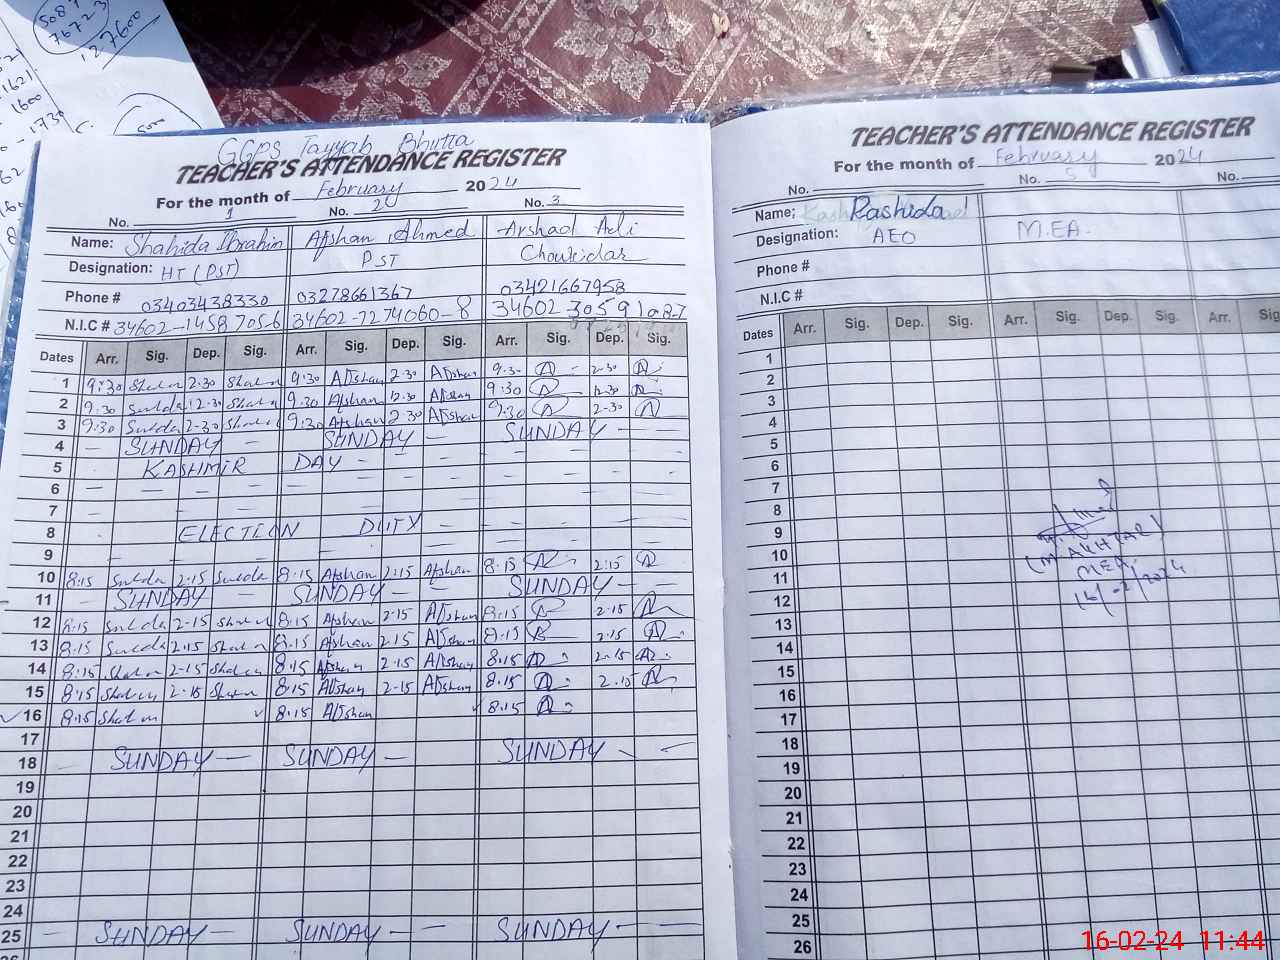 5087
76723
127600
1621
1600
1730
GGPS Tayyab Bhutta
TEACHER'S ATTENDANCE REGISTER
For the month of February 2024
No. 1 No. 2 No. 3
Name: Shahida Ibrahim Afshan Ahmed Arshad Ali
Designation: HT (PST) PST Chowkidar
Phone # 03403438330 03278661367 03421667958
N.I.C # 34602-1458705-6 34602-7274060-8
Dates Arr. Sig. Dep. Sig. Arr. Sig. Dep. Sig. Arr. Sig. Dep. Sig.
1 9:30 2-30 9:30 Afshan 2-30 Afshan 9:30 2-30
2 9:30 12-30 9:30 Afshan 12-30 Afshan 9:30 12-30
3 9:30 2-30 9:30 Afshan 2-30 Afshan 9:30 2-30
4 — SUNDAY — SUNDAY — SUNDAY —
5 KASHMIR DAY
6
7
8 ELECTION DUTY
9
10 8:15 2-15 8:15 Afshan 2:15 Afshan 8:15 2:15
11 SUNDAY — SUNDAY — SUNDAY —
12 8:15 2-15 8:15 Afshan 2-15 Afshan 8:15 2-15
13 8:15 2-15 8:15 Afshan 2-15 Afshan 8:15 2-15
14 8:15 2-15 8:15 Afshan 2-15 Afshan 8:15 2-15
15 8:15 2-15 8:15 Afshan 2-15 Afshan 8:15 2-15
16 8:15 8:15 Afshan 8:15
17
18 SUNDAY — SUNDAY — SUNDAY
19
20
21
22
23
24
25 — SUNDAY — SUNDAY — SUNDAY —
TEACHER'S ATTENDANCE REGISTER
For the month of February 2024
No. No. 5 No.
Name; Rashida
Designation: AEO M.EA.
Phone #
N.I.C #
Dates Arr. Sig. Dep. Sig. Arr. Sig. Dep. Sig. Arr. Sig.
1
2
3
4
5
6
7
8
9
10
11
12
13
14
15
16
17
18
19
20
21
22
23
24
25
26
(M. AKHTAR)
MEA.
16/-2/2024
16-02-24 11:44